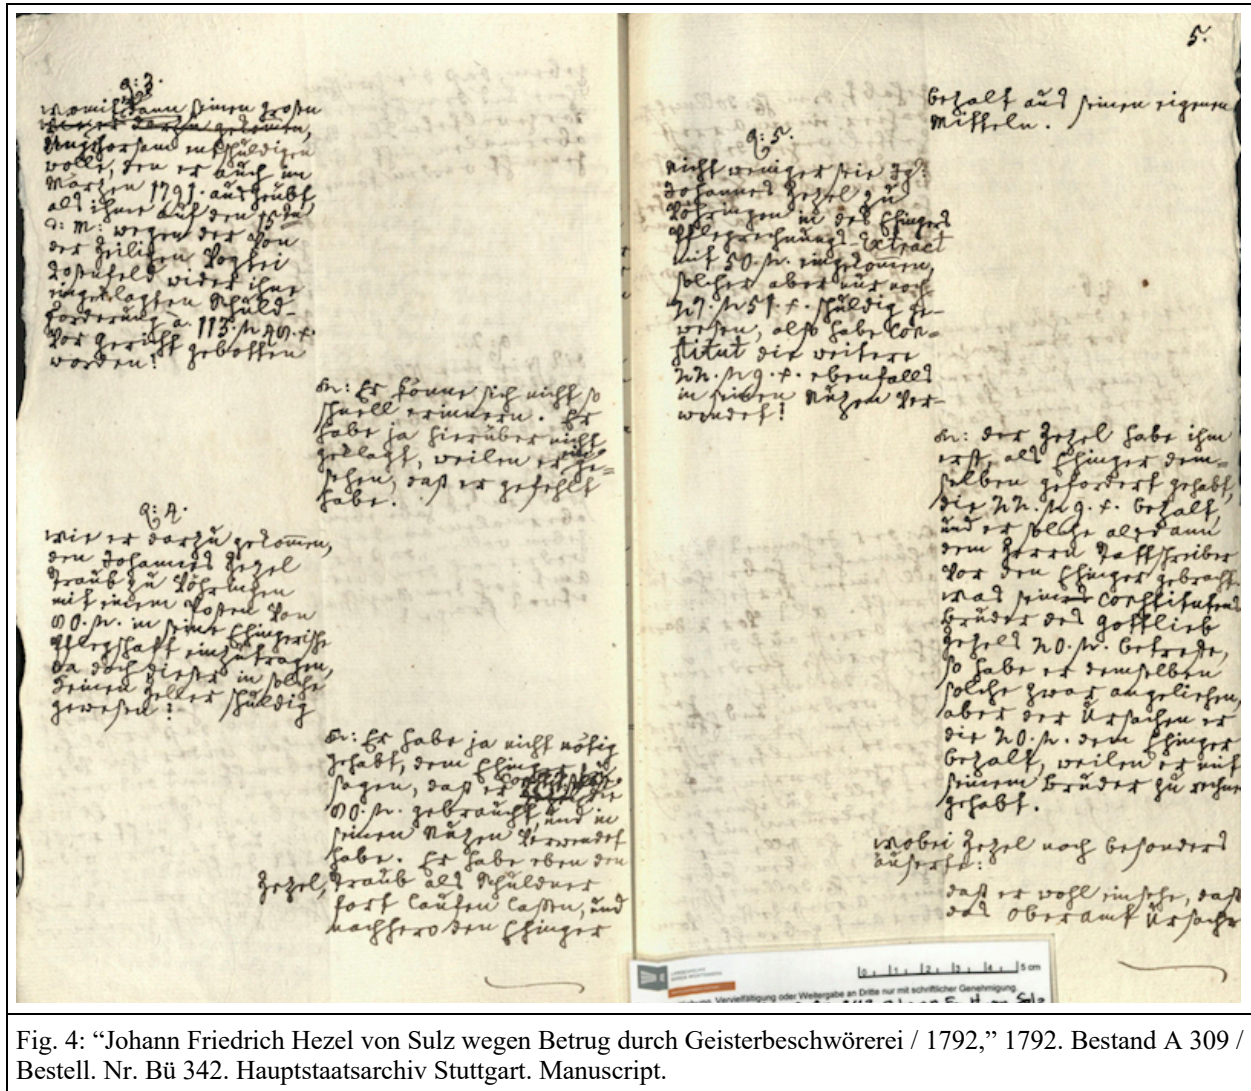 q: 3.
womit er dann seinen großen
Ungehorsam entschuldigen
wolle, den er auch im
Märzen 1791. ausgeübt,
als ihme auf den 15ten
d: M: wegen der von
der Heiligen Vogtei
Rosenfeld wider ihne
eingeklagten Schuld-
forderung, a. 113. fl 40. x.
vor Gericht gebotten
worden!
Rx: Er könne sich nicht so
schnell erinnern. Er
habe ja hierüber nicht
geklagt, weilen er
sehen, daß er gefehlt
habe.
q: 4.
wie er darzu gekommen,
den Johannes Hezel
Traub zu Vöhringen
mit einem Posten von
80. fl. in seine Ehingerische
Pflegschaft einzutragen,
da doch dieser in solche
keinen Heller schuldig
gewesen!
Rx: Er habe ja nicht nötig
gehabt, dem Ehinger zu
sagen, daß er die
80. fl. gebraucht, und in
seinen Nuzen verwendet
habe. Er habe eben den
Hezel, Traub als Schuldner
fort laufen lassen, und
nachhero den Ehinger
5.
bezalt aus seinen eigenen
Mitteln.
q: 5.
nicht weniger seie Jg:
Johannes Hezel zu
Vöhringen in des Ehingers
Pflegrechnungs-Extract
mit 50. fl. eingekommen,
solcher aber nur noch
27. fl 51. x. schuldig ge-
wesen, also habe Con-
stitut die weitere
22. fl 9. x. ebenfalls
in seinen Nuzen ver-
wendet!
Rx: der Hezel habe ihm
erst, als Ehinger dem-
selben gefordert gehabt,
die 22. fl 9. x. bezalt,
und er solche alsdann
dem Herrn Rattschreiber
vor den Ehinger gebracht.
was seines Constitutens
Bruder des Gottlieb
Hezels 20. fl. betreffe,
so habe er demselben
solche zwar angeliehen,
aber der Ursachen er
die 20. fl. dem Ehinger
bezalt, weilen er mit
seinem Bruder zu rechnen
gehabt.
wobei Hezel noch besonders
äuserte:
daß er wohl einsehe, daß
das Oberamt Ursache
0 1 2 3 4 5 cm
LANDESARCHIV
BADEN-WÜRTTEMBERG
Vervielfältigung oder Weitergabe an Dritte nur mit schriftlicher Genehmigung.
Fig. 4: “Johann Friedrich Hezel von Sulz wegen Betrug durch Geisterbeschwörerei / 1792,” 1792. Bestand A 309 /
Bestell. Nr. Bü 342. Hauptstaatsarchiv Stuttgart. Manuscript.